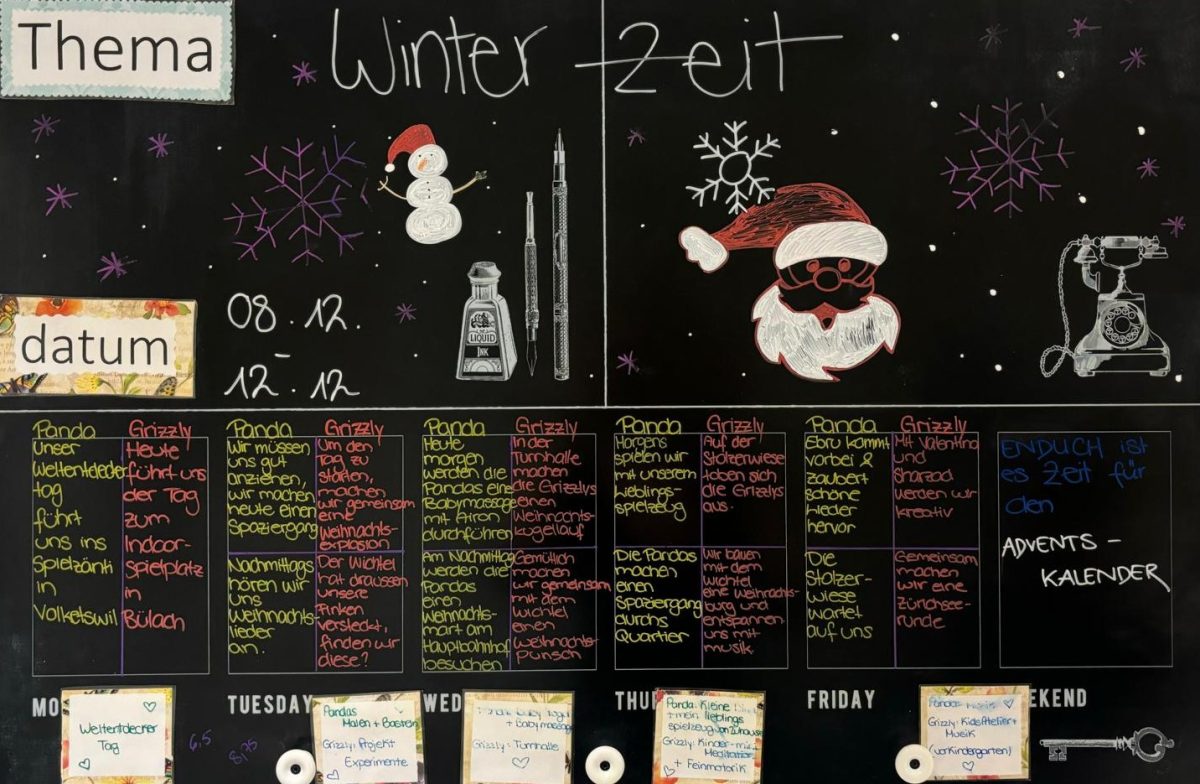 Thema
Winter Zeit
datum
08.12.
-
12.12
LIQUID
INK
Panda
Unser
Weltentdecker
tag
führt
uns ins
Spielzänti
in
Volketswil
Grizzly
Heute
führt uns
der Tag
zum
Indoor-
spielplatz
in
Bülach
Panda
Wir müssen
uns gut
anziehen,
wir machen
heute einen
Spaziergang
Nachmittags
hören wir
uns
Weihnachts-
lieder
an.
Grizzly
Um den
Tag zu
starten,
machen
wir gemeinsam
eine
Weihnachts-
explosion
Der Wichtel
hat draussen
unsere
Finken
versteckt,
finden wir
diese?
Panda
Heute
morgen
werden die
Pandas eine
Babymassage
mit Airon
durchführen
Am Nachmittag
werden die
Pandas
einen
Weihnachts-
mart am
Hauptbahnhof
besuchen
Grizzly
In der
Turnhalle
machen
die Grizzlys
einen
Weihnachts-
kugellauf
Gemütlich
machen
wir gemeinsam
mit dem
Wichtel
einen
Weihnachts-
punsch
Panda
Morgens
spielen wir
mit unserem
Lieblings-
spielzeug
Die Pandas
machen
einen
Spaziergang
durchs
Quartier
Grizzly
Auf der
Stolzerwiese
toben sich
die Grizzlys
aus.
Wir bauen
mit dem
Wichtel
eine Weihnachts-
burg und
entspannen
uns mit
musik
Panda
Ebru kommt
vorbei &
zaubert
schöne
Lieder
hervor
Die
Stolzer-
wiese
wartet
auf uns
Grizzly
Mit Valentina
und
Sharzad
werden wir
kreativ
Gemeinsam
machen
wir eine
Zürichsee-
runde
ENDLICH ist
es Zeit für
den
ADVENTS-
KALENDER
MO
TUESDAY
WED
THU
FRIDAY
EKEND
Weltentdecker
Tag
6,5
8,75
Pandas
Malen + Basteln
Grizzly: Projekt
Experimente
+ Babymassage
Grizzly: Turnhalle
Panda: Kleine
+ mein lieblings
spielzeug von zuhause
Grizzly: Kinder-
Meditation
+ Feinmotorik
Panda: Musik
Grizzly: KidsAtelier +
Musik
(vorkindergarten)